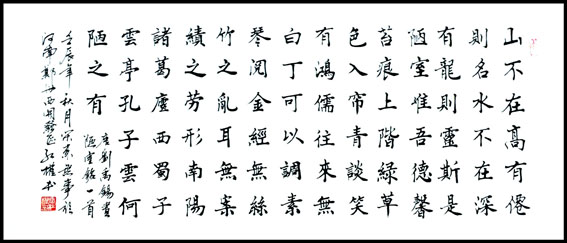 山不在高有僊
則名水不在深
有龍則靈斯是
陋室惟吾德馨
苔痕上階綠草
色入帘青談笑
有鴻儒往來無
白丁可以調素
琴閱金經無絲
竹之亂耳無案
績之勞形南陽
諸葛廬西蜀子
雲亭孔子雲何
陋之有
唐劉禹錫書
陋室銘一首
壬辰年秋月
河南